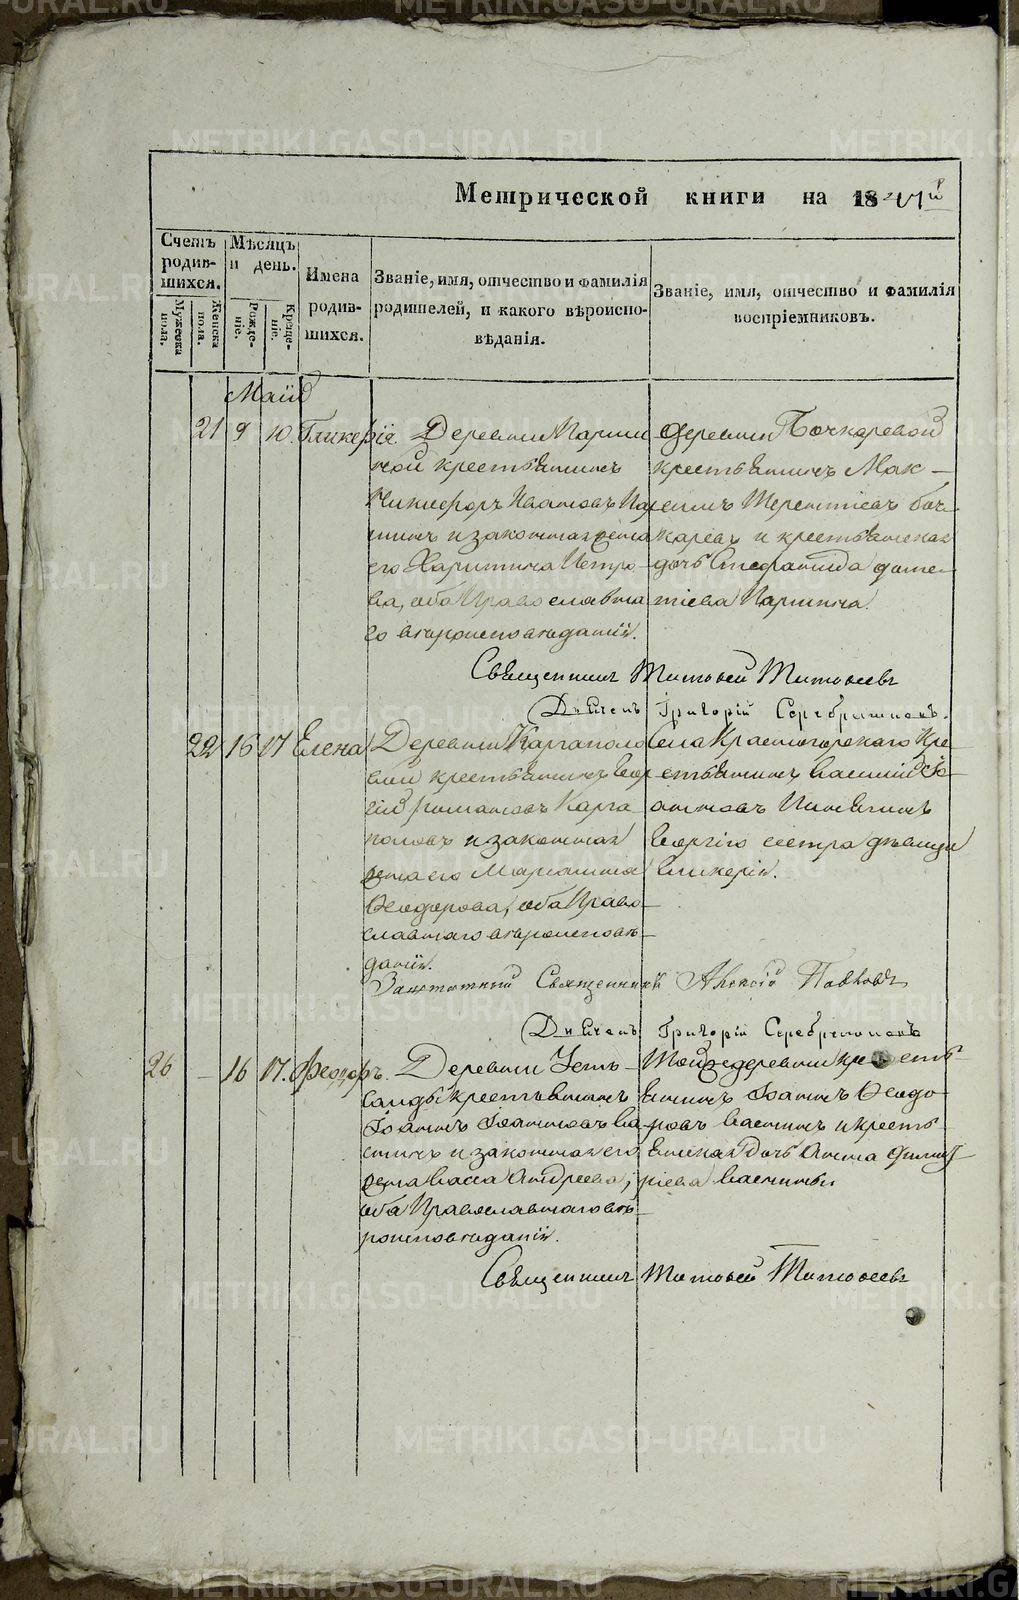 METRIKI.GASO-URAL.RU
Метрической книги на 18
Счетъ родившихся.
Мужеска пола.
Женска пола.
Мѣсяцъ и день.
Рожденіе.
Крещеніе.
Имена родившихся.
Званіе, имя, отчество и фамилія родителей, и какого вѣроисповѣданія.
Званіе, имя, отчество и фамилія воспріемниковъ.
Маій
21 9 10. Гликерія. Деревни Паршиной крестьянинъ
Никифоръ Ивановъ Паршинъ и законная жена
его Харитина Петрова, оба Православнаго вѣроисповѣданія.
Деревни Бочкаревой
крестьянинъ
Терентіевъ Бочкаревъ и крестьянская
дочь Стефанида
Паршина.
Священникъ Матвей Матвеевъ
Дьяченъ Григорій Серебрениковъ.
22 16 17 Елена
Деревни Каргаполовой крестьянинъ
Романовъ Каргаполовъ и законная
жена его Маріамна
Ѳеодорова, оба Православнаго вѣроисповѣданія.
Села Красногорскаго крестьянинъ Василий
Георгіо сестра дѣвица
Гликерія.
Заштатный Священникъ Алексій Павловъ
Дьяченъ Григорій Серебрениковъ
26 – 16 17. Феодоръ.
Деревни
крестьянинъ
Іоаннъ Іоанновъ
и законная его
жена Васса Андреева,
оба Православнаго вѣроисповѣданія.
Той же деревни крестьянинъ Іоаннъ Ѳеодоровъ
и крестьянская дочь Анна
Священникъ Матвей Матвеевъ